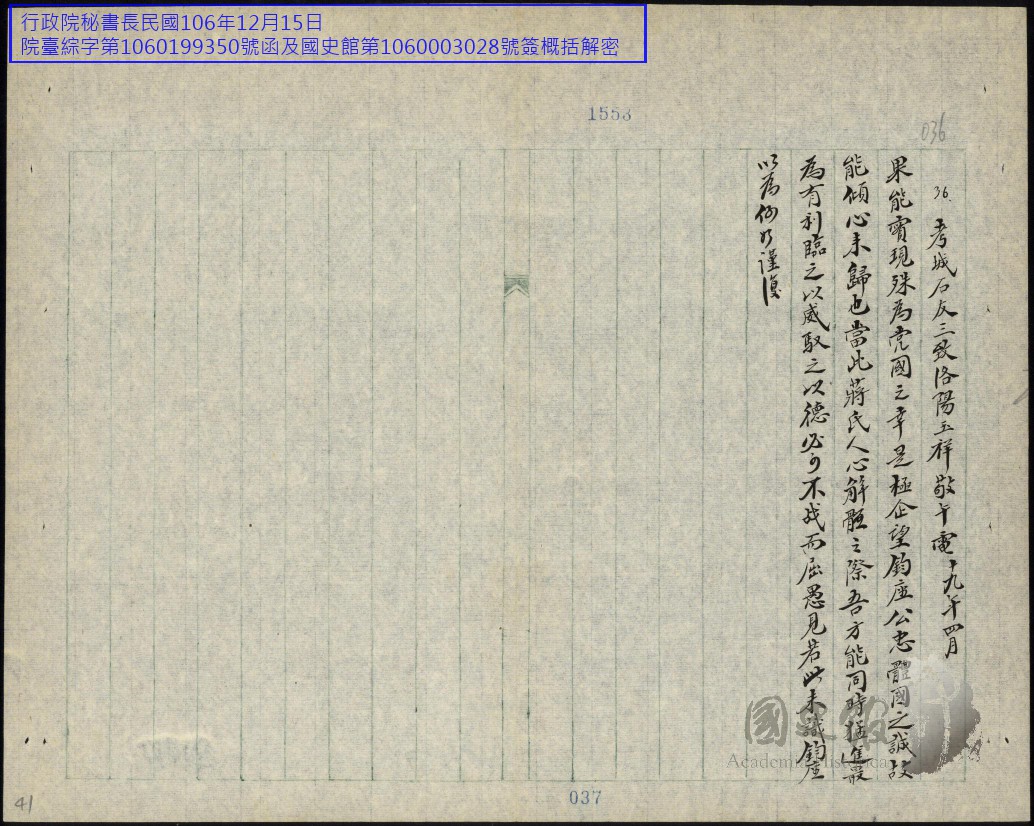 行政院秘書長民國106年12月15日
院臺綜字第1060199350號函及國史館第1060003028號簽概括解密
1553
036
36. 考城石友三致洛陽玉祥敬午電 十九年四月
果能實現殊為黨國之幸是極企望鈞座公忠體國之誠故
能傾心來歸也當此蔣氏人心解體之際吾方能同時猛進最
為有利臨之以威馭之以德必可不戰而屈愚見若此未識鈞座
以為何如謹復
國史館
Academia Historica
037
41